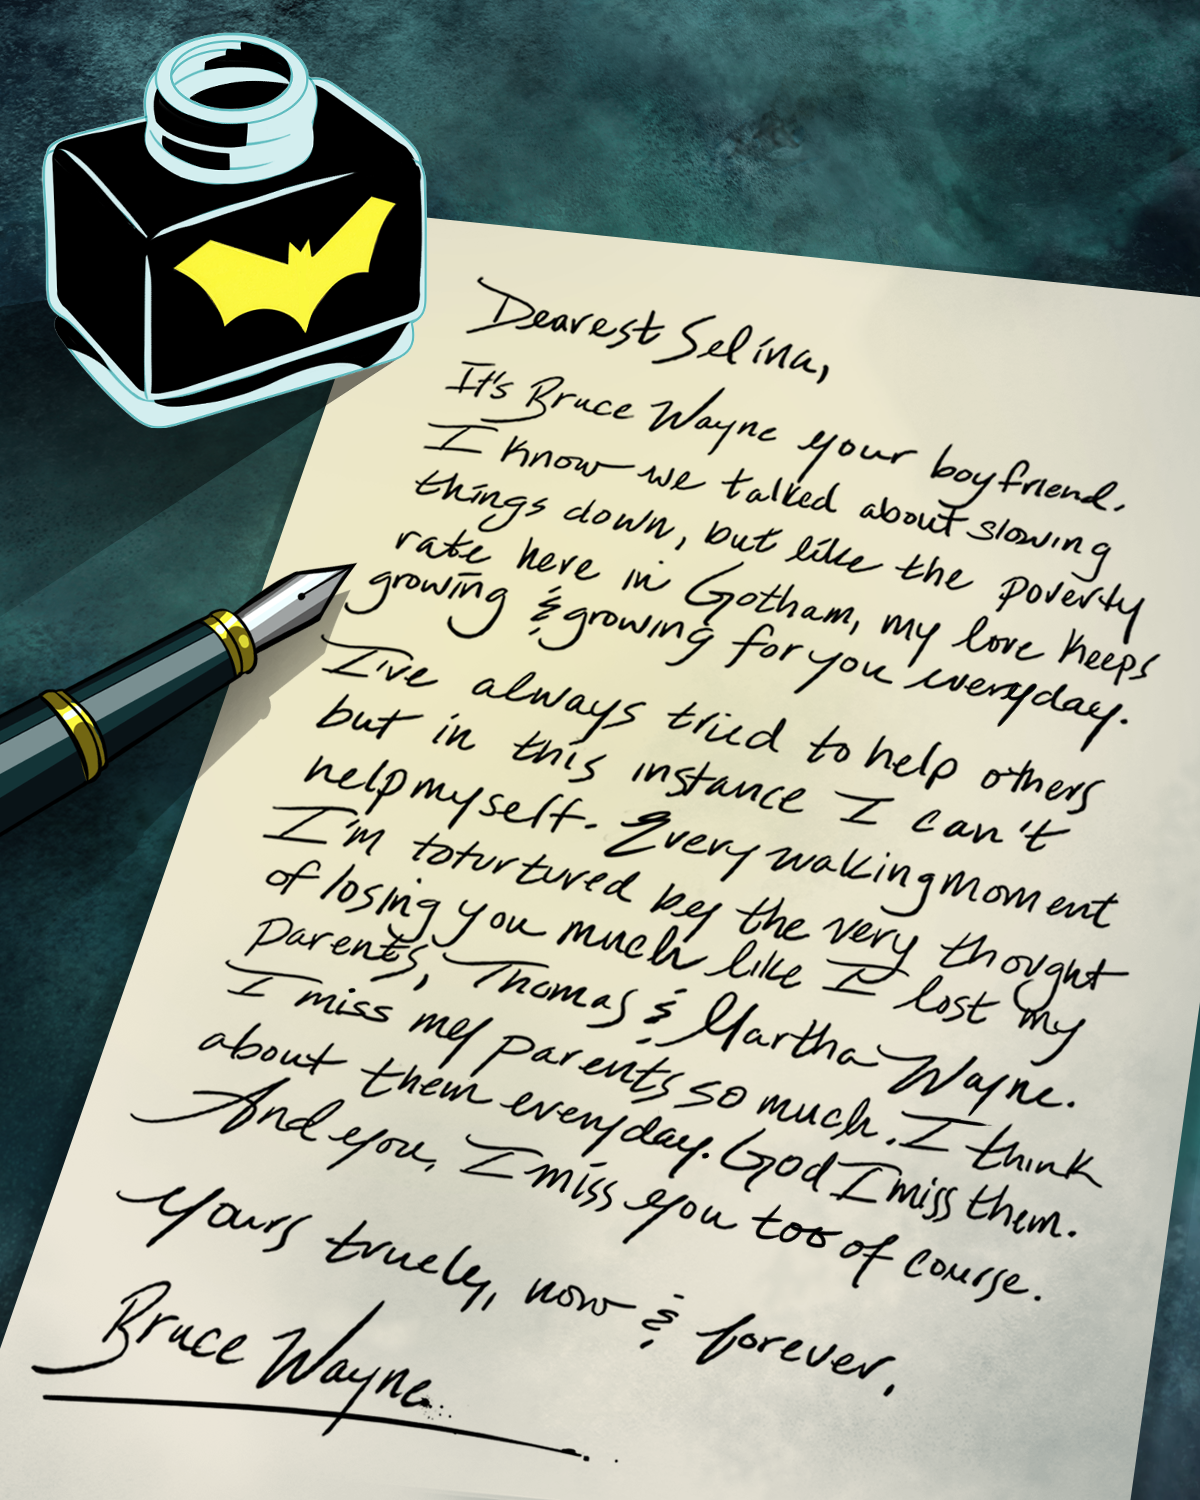 Dearest Selina,
It's Bruce Wayne your boyfriend.
I know we talked about slowing
things down, but like the poverty
rate here in Gotham, my love keeps
growing & growing for you everyday.
I've always tried to help others
but in this instance I can't
help myself. Every waking moment
I'm toturtured by the very thought
of losing you much like I lost my
parents, Thomas & Martha Wayne.
I miss my parents so much. I think
about them everyday. God I miss them.
And you, I miss you too of course.
Yours truely, now & forever,
Bruce Wayne